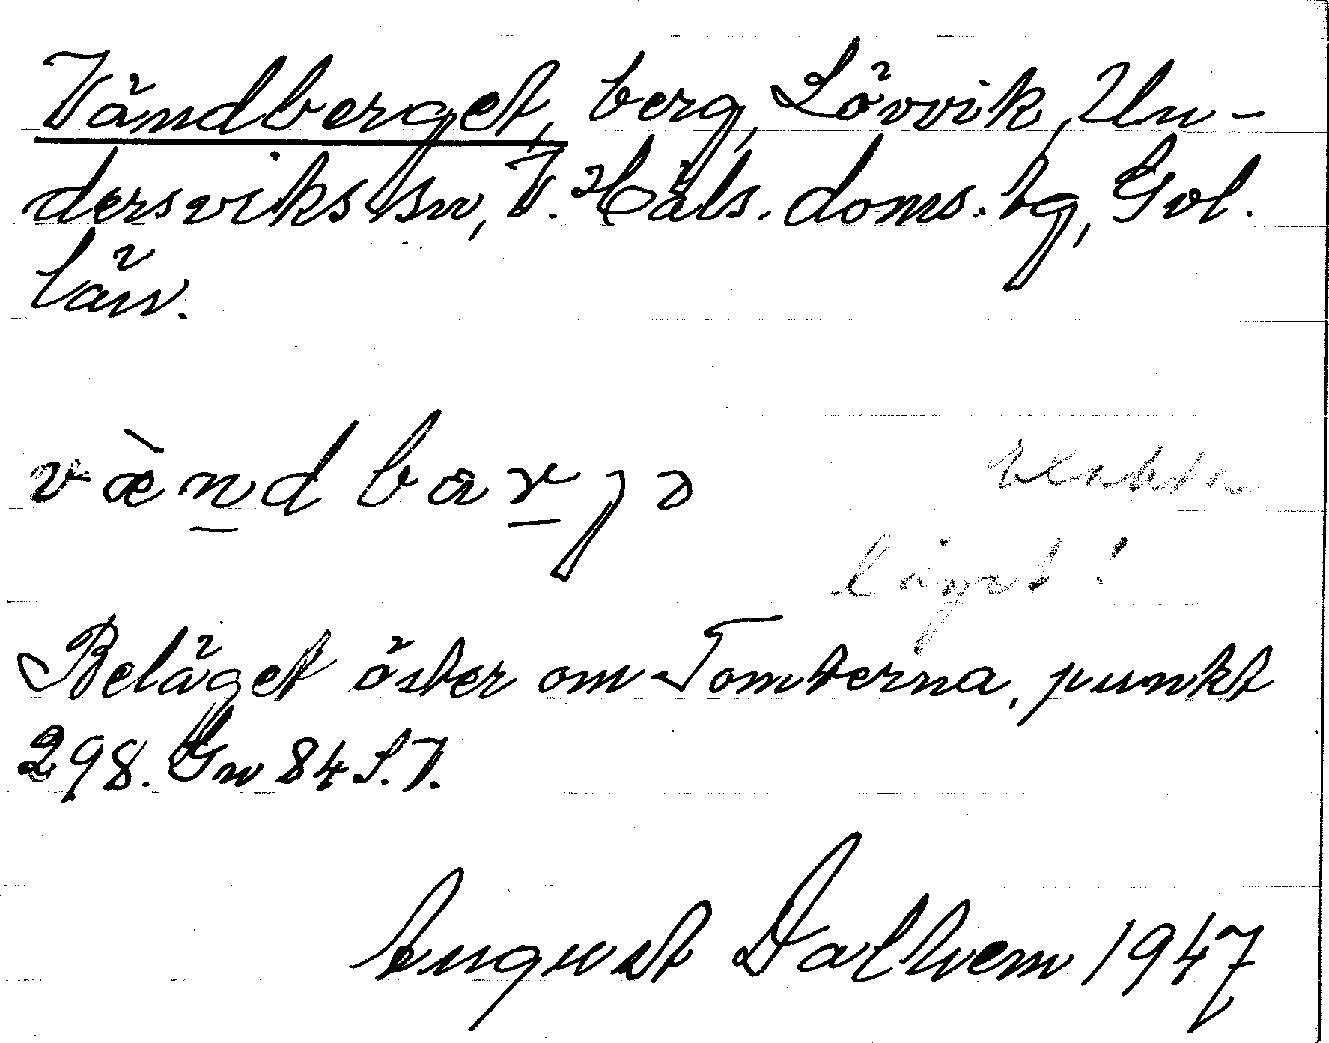 Vändberget, berg, Lövvik, Un-
dersviks sn, V. Häls. doms. tg, Gvl.
län.
væ̀n̲dbar̲jə
läget!
Beläget öster om Tomterna, punkt
298. Gw 84 S.V.
August Dalhem 1947